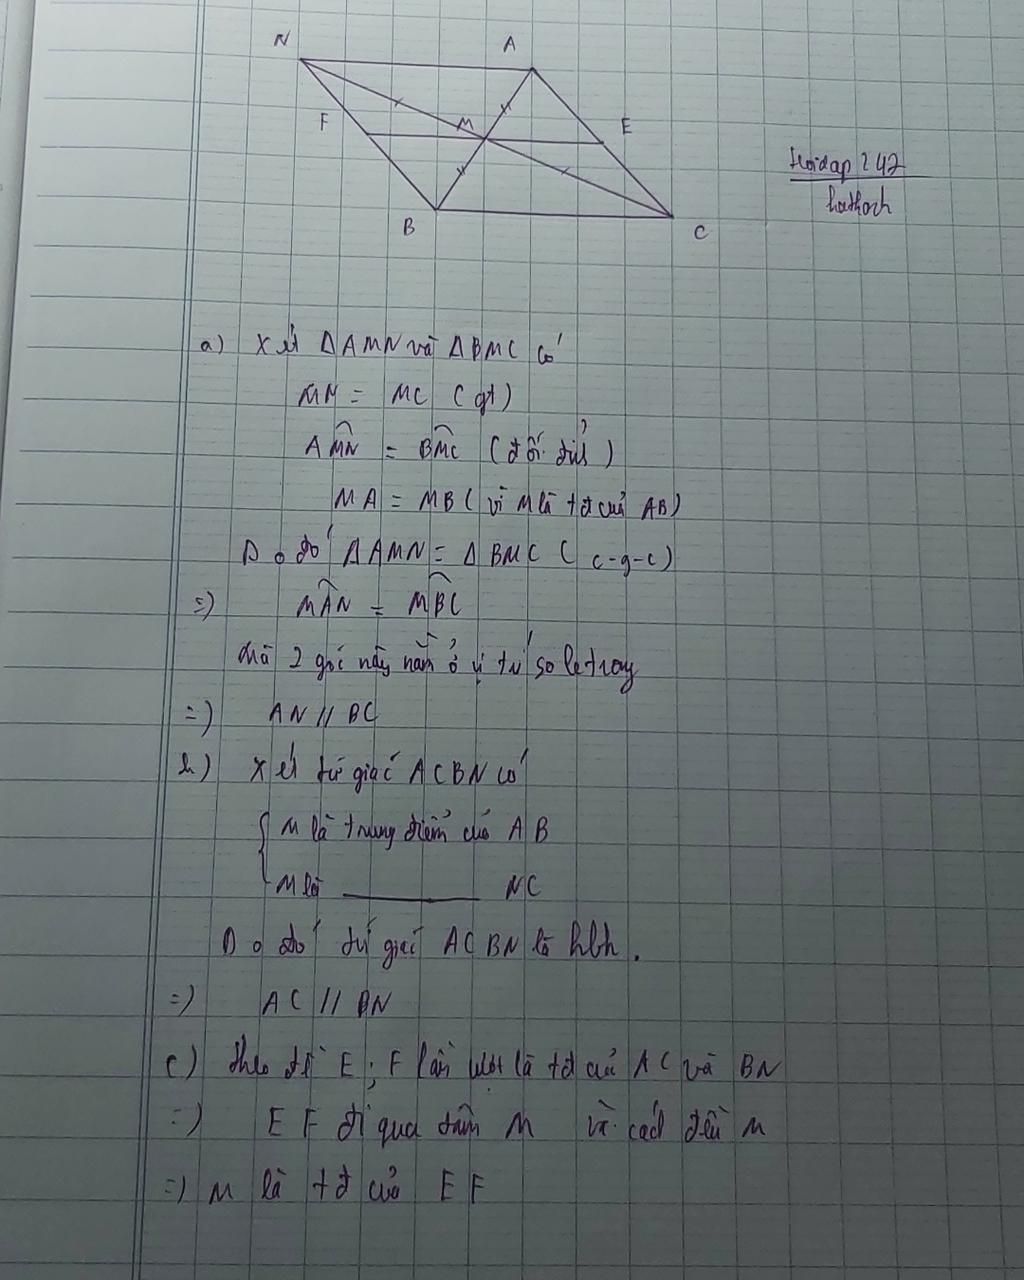 N A
F M E
B C
Hoidap247
hothoch
a) Xét ΔAMN và ΔBMC có
MN = MC (gt)
AMN = BMC (đối đỉnh)
MA = MB (vì M là tđ của AB)
Do đó ΔAMN = ΔBMC (c-g-c)
=) MAN = MBC
Mà 2 góc này nằm ở vị trí so le trong
=) AN // BC
b) Xét tứ giác ACBN có
M là trung điểm của AB
M là ——— NC
Do đó tứ giác ACBN là hbh.
=) AC // BN
c) theo đề E; F lần lượt là tđ của AC và BN
=) EF đi qua tâm M và cách đều M
=) M là tđ của EF